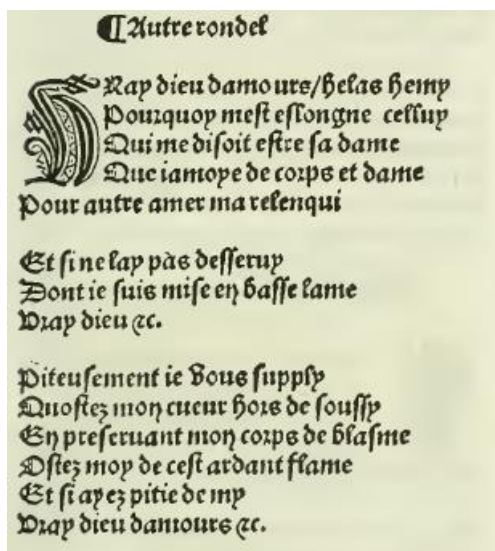 ¶ Autre rondel
VRay dieu damours/helas hemy
Pourquoy mest eslongne celluy
Qui me disoit estre sa dame
Que iamoye de corps et dame
Pour autre amer ma relenqui
Et si ne lay pas desseruy
Dont ie suis mise en basse lame
Vray dieu ⁊c.
Piteusement ie vous supply
Quostez mon cueur hors de soussy
En preseruant mon corps de blasme
Ostez moy de cest ardant flame
Et si ayez pitie de my
Vray dieu damours ⁊c.